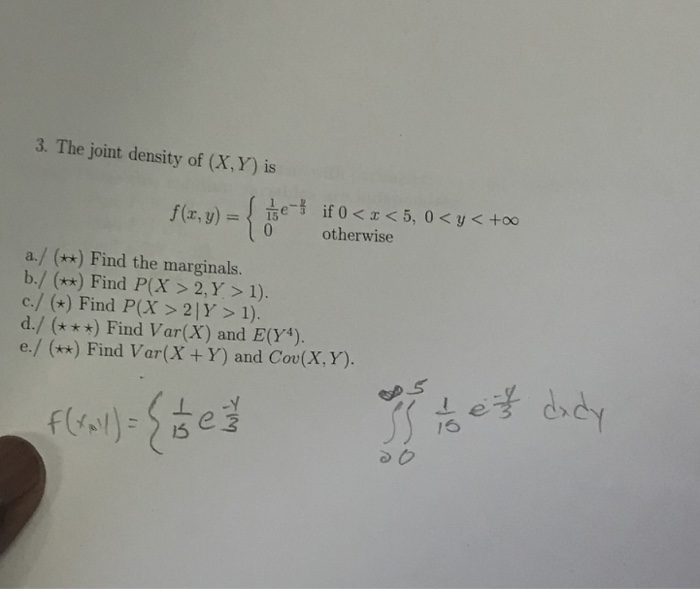 3. The joint density of (X, Y) is
f(x, y) = { 1/15 e^{-y/3} if 0 < x < 5, 0 < y < +∞
0 otherwise
a./ (⋆⋆) Find the marginals.
b./ (⋆⋆) Find P(X > 2, Y > 1).
c./ (⋆) Find P(X > 2|Y > 1).
d./ (⋆⋆⋆) Find Var(X) and E(Y⁴).
e./ (⋆⋆) Find Var(X + Y) and Cov(X, Y).
f(x,y) = { 1/15 e^{-y/3}
∫₀^∞ ∫₀⁵ 1/15 e^{-y/3} dxdy